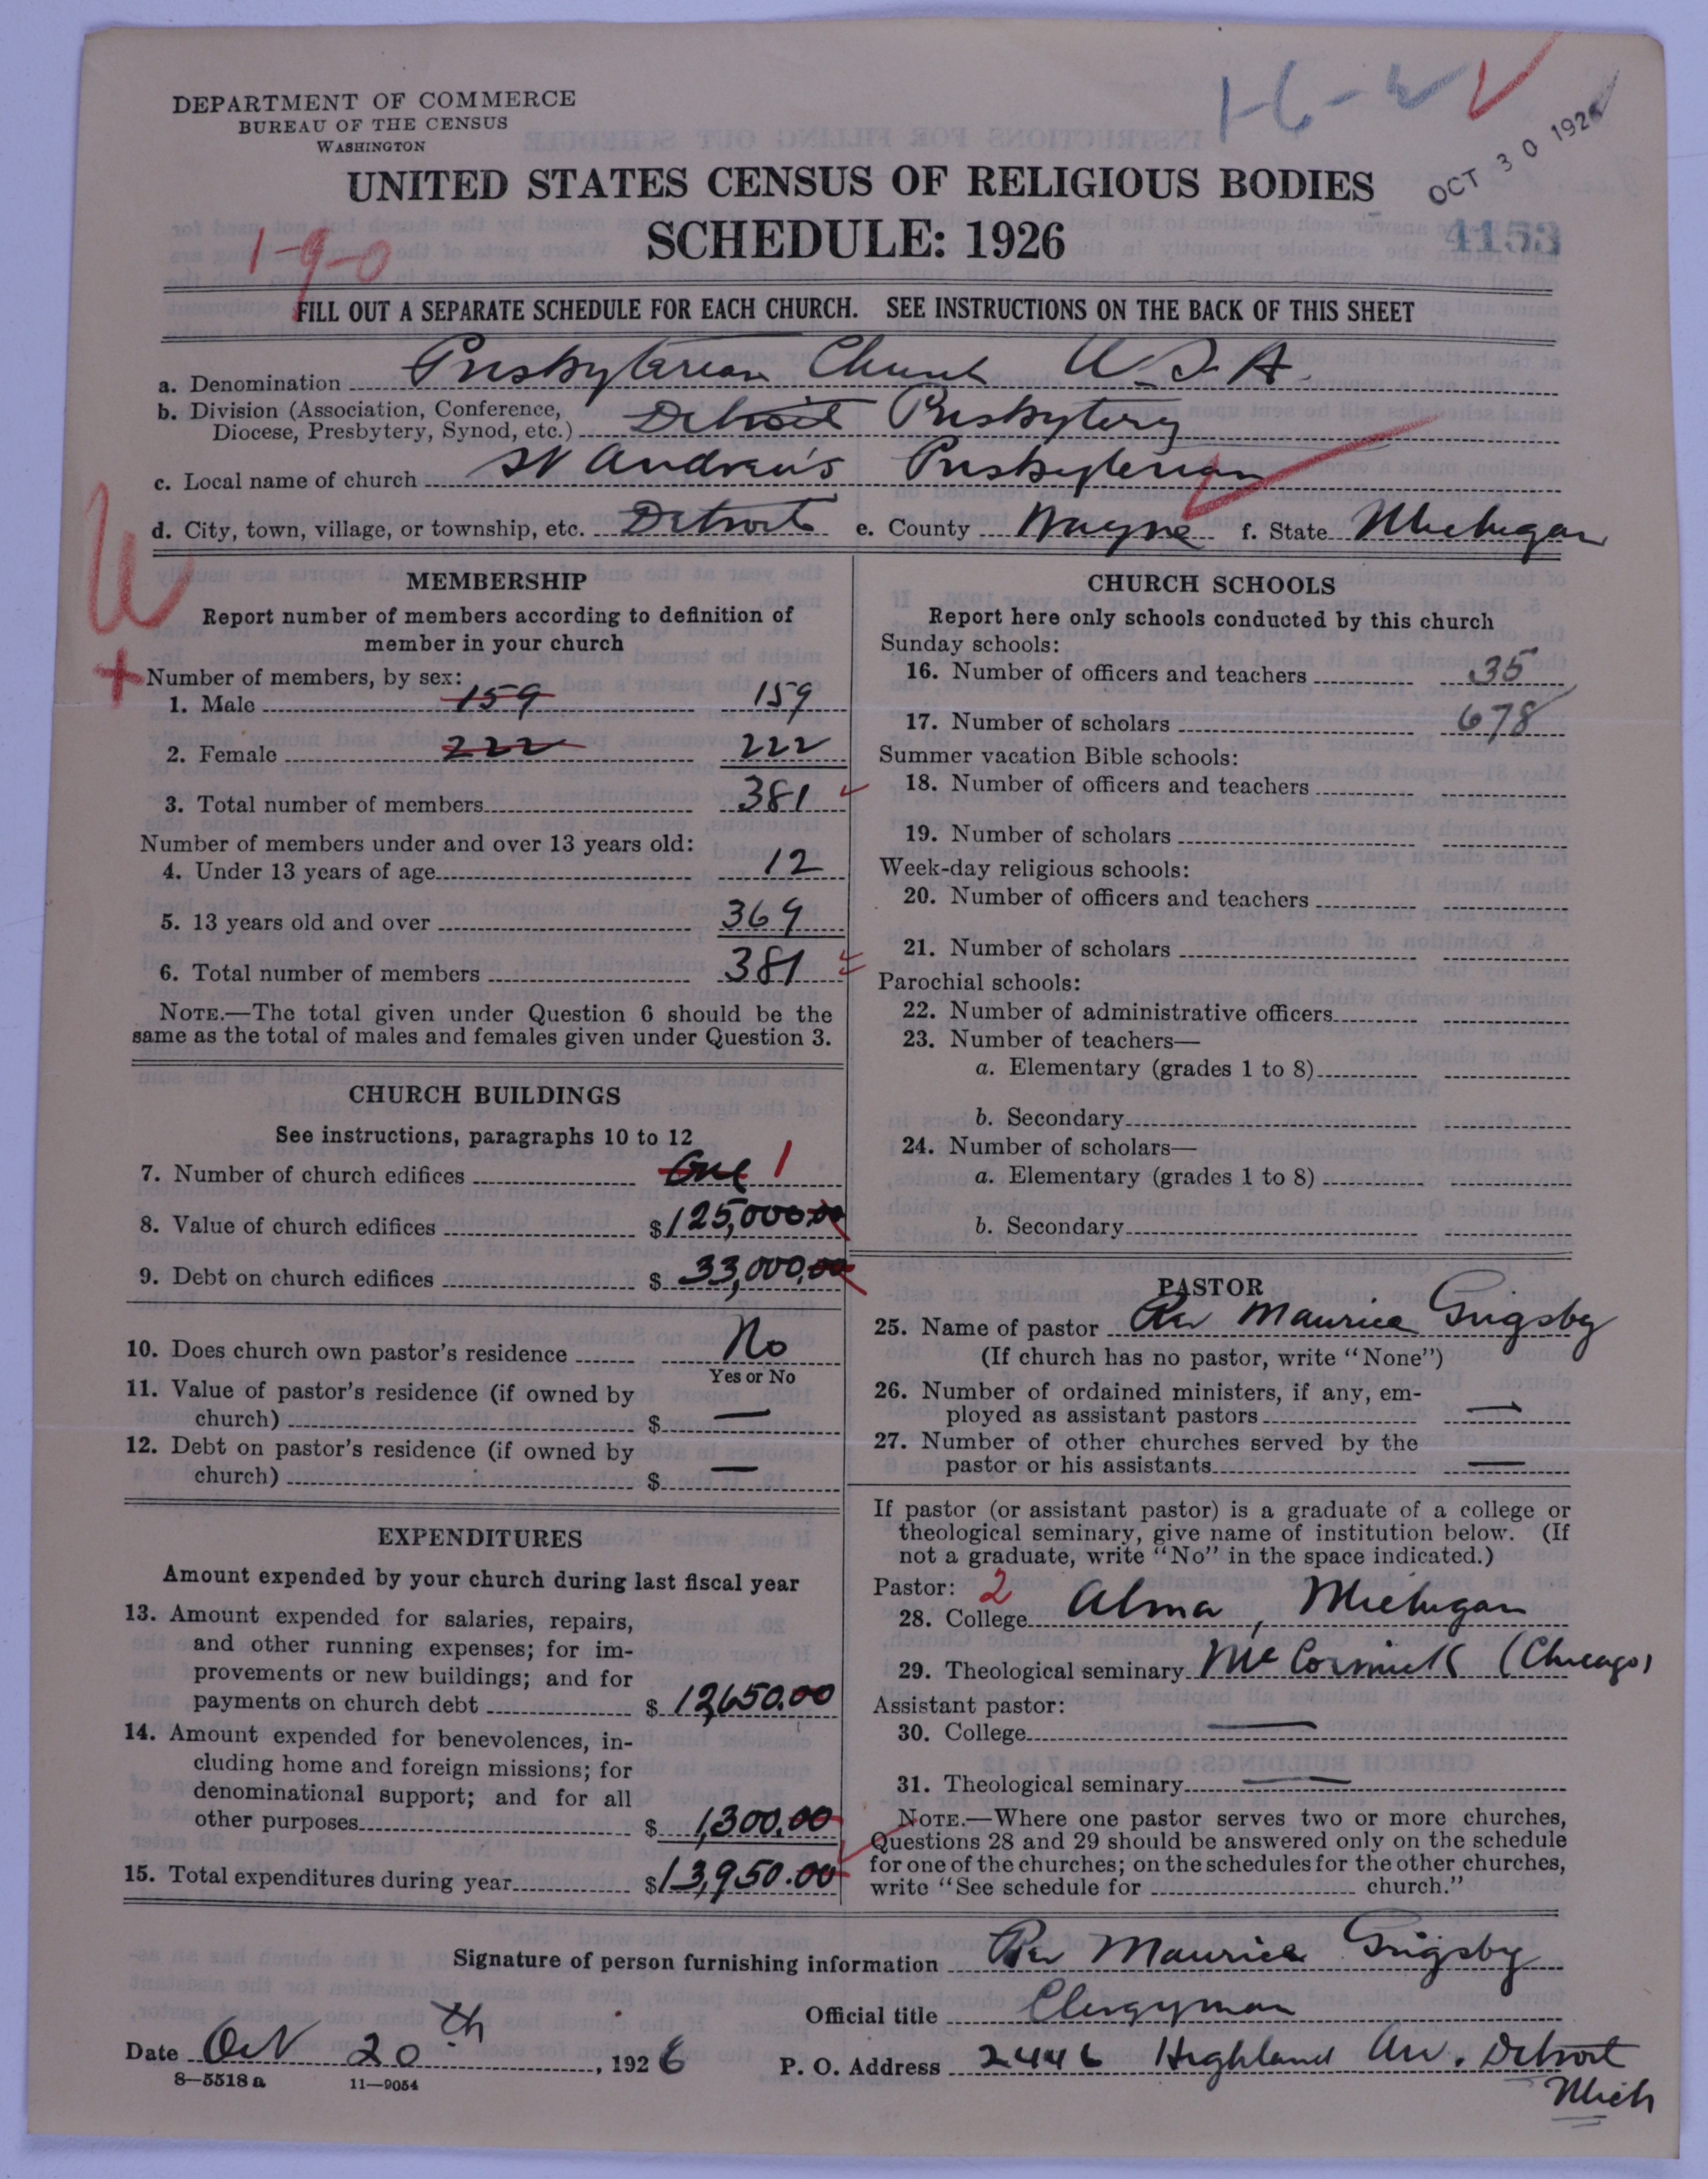 1-6-2
OCT 30 1926
DEPARTMENT OF COMMERCE
BUREAU OF THE CENSUS
WASHINGTON
UNITED STATES CENSUS OF RELIGIOUS BODIES
SCHEDULE: 1926
4153
1-9-0
FILL OUT A SEPARATE SCHEDULE FOR EACH CHURCH. SEE INSTRUCTIONS ON THE BACK OF THIS SHEET
a. Denomination Presbyterian Church U.S.A.
b. Division (Association, Conference,
Diocese, Presbytery, Synod, etc.) Detroit Presbytery
c. Local name of church St Andrew's Presbyterian
d. City, town, village, or township, etc. Detroit e. County Wayne f. State Michigan
W
+
MEMBERSHIP
Report number of members according to definition of
member in your church
Number of members, by sex:
1. Male 159 159
2. Female 222 222
3. Total number of members 381
Number of members under and over 13 years old:
4. Under 13 years of age 12
5. 13 years old and over 369
6. Total number of members 381
NOTE.—The total given under Question 6 should be the
same as the total of males and females given under Question 3.
CHURCH BUILDINGS
See instructions, paragraphs 10 to 12
7. Number of church edifices One 1
8. Value of church edifices $125,000.00
9. Debt on church edifices $33,000.00
10. Does church own pastor's residence No
Yes or No
11. Value of pastor's residence (if owned by
church) $ —
12. Debt on pastor's residence (if owned by
church) $ —
EXPENDITURES
Amount expended by your church during last fiscal year
13. Amount expended for salaries, repairs,
and other running expenses; for im-
provements or new buildings; and for
payments on church debt $12,650.00
14. Amount expended for benevolences, in-
cluding home and foreign missions; for
denominational support; and for all
other purposes $1,300.00
15. Total expenditures during year $13,950.00
CHURCH SCHOOLS
Report here only schools conducted by this church
Sunday schools:
16. Number of officers and teachers 35
17. Number of scholars 678
Summer vacation Bible schools:
18. Number of officers and teachers
19. Number of scholars
Week-day religious schools:
20. Number of officers and teachers
21. Number of scholars
Parochial schools:
22. Number of administrative officers
23. Number of teachers—
a. Elementary (grades 1 to 8)
b. Secondary
24. Number of scholars—
a. Elementary (grades 1 to 8)
b. Secondary
PASTOR
25. Name of pastor Rev Maurice Grigsby
(If church has no pastor, write "None")
26. Number of ordained ministers, if any, em-
ployed as assistant pastors —
27. Number of other churches served by the
pastor or his assistants —
If pastor (or assistant pastor) is a graduate of a college or
theological seminary, give name of institution below. (If
not a graduate, write "No" in the space indicated.)
Pastor: 2
28. College Alma, Michigan
29. Theological seminary McCormick (Chicago)
Assistant pastor:
30. College —
31. Theological seminary —
NOTE.—Where one pastor serves two or more churches,
Questions 28 and 29 should be answered only on the schedule
for one of the churches; on the schedules for the other churches,
write "See schedule for church."
Signature of person furnishing information Rev Maurice Grigsby
Official title Clergyman
Date Oct 20th, 1926 P. O. Address 2446 Highland Av. Detroit
Mich
8—5518a 11—9054